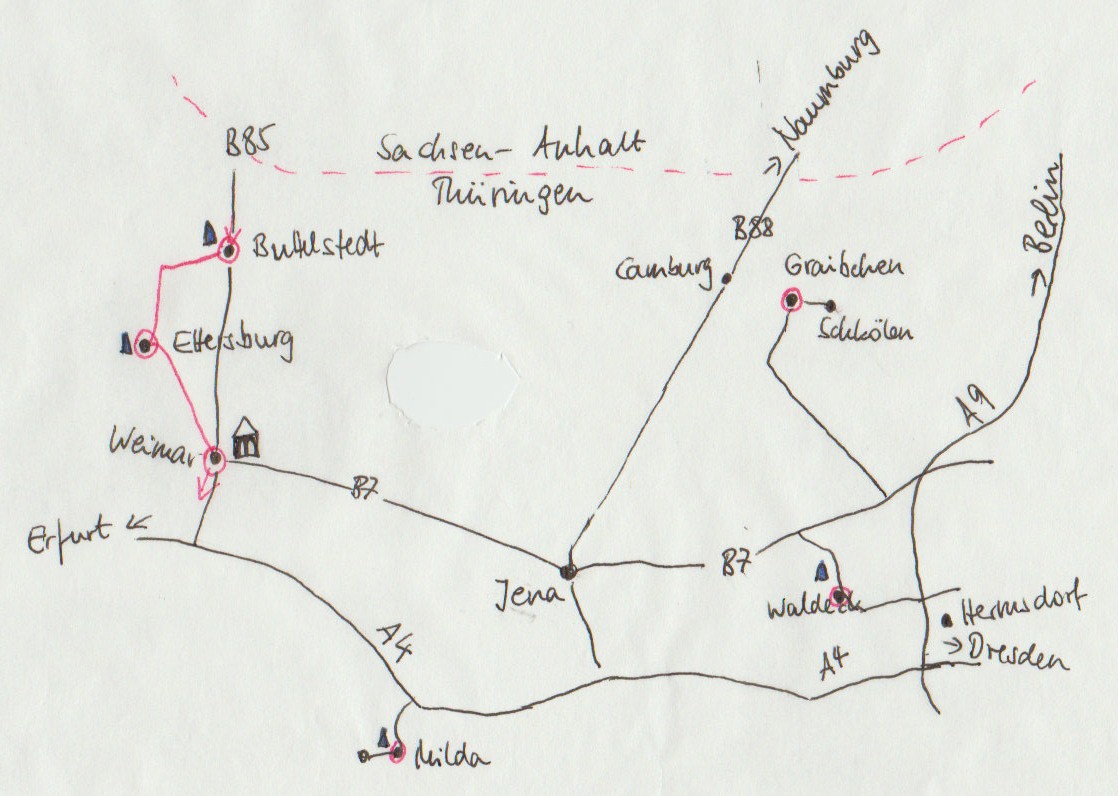 Naumburg
B85
Sachsen-Anhalt
Thüringen
Berlin
B88
Buttelstedt
Camburg
Graitschen
Schkölen
Ettersburg
A9
Weimar
B7
Erfurt
B7
Jena
Waldeck
Hermsdorf
A4
Dresden
A4
Milda